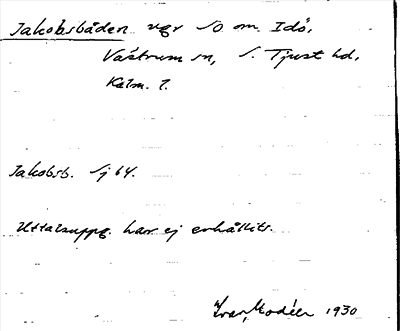 Jakobsbåden vgr SO om Idö,
Västrum sn, S. Tjust hd,
Kalm. l.
Jakobsb. Sj 64.
Uttalsuppg. har ej erhållits.
Ivar Modéer 1930